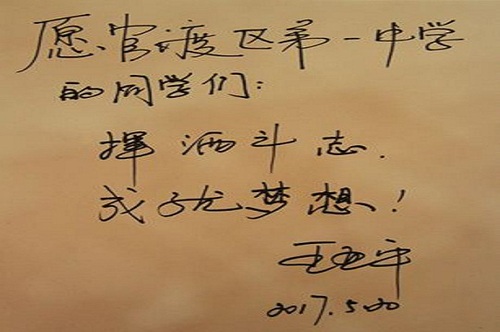 愿官渡区第一中学
的同学们：
挥洒斗志.
成就梦想！
王亚平
2017.5.20